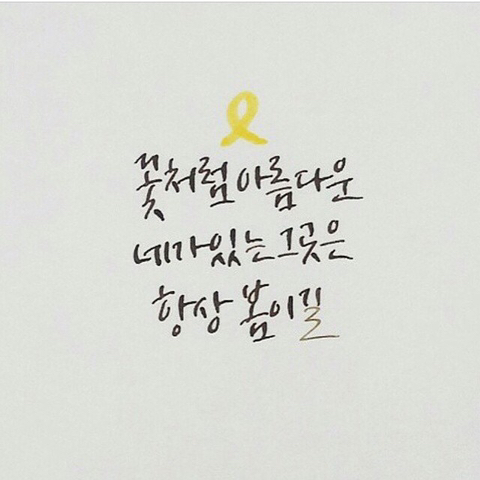 꽃처럼 아름다운
네가 있는 그곳은
항상 봄이길